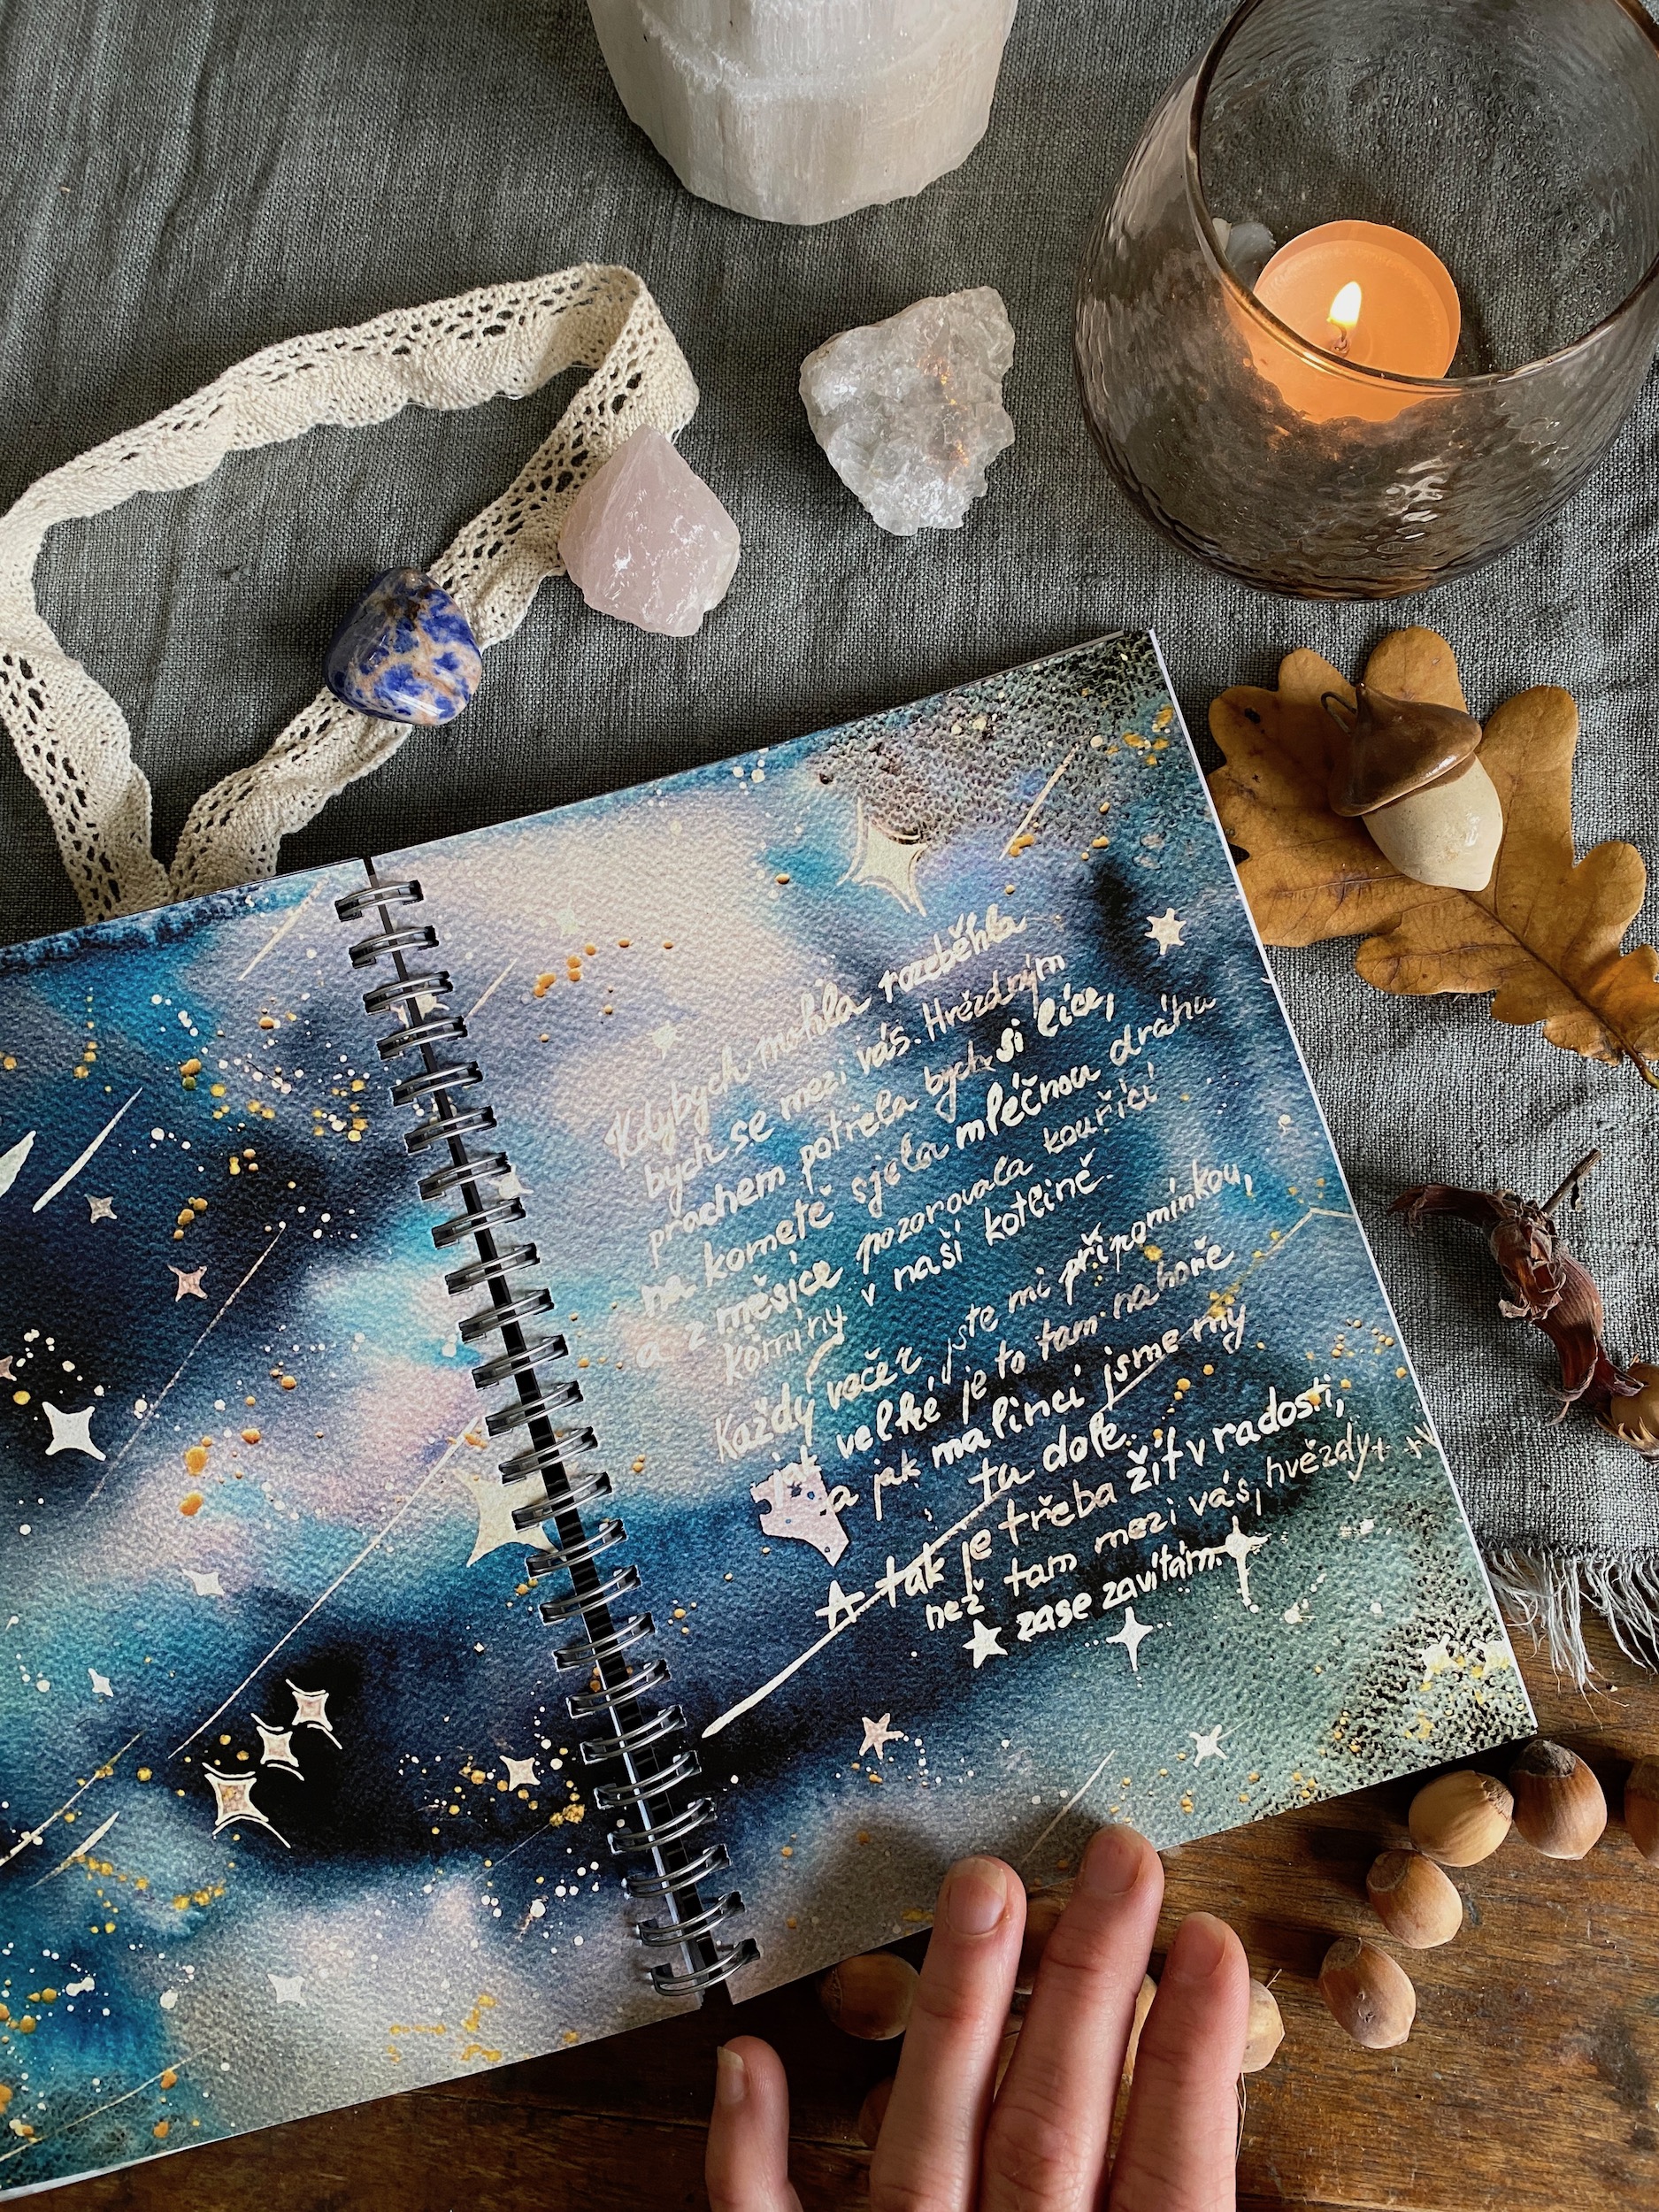 Kdybych mohla rozeběhla
bych se mezi vás. Hvězdným
prachem potřela bych si líce,
na kometě sjela mléčnou dráhu
a z měsíce pozorovala kouřící
komíny v naší kotlině.
Každý večer jste mi připomínkou,
jak velké je to tam nahoře
a jak malincí jsme my
tu dole.
A tak je třeba žít v radosti,
než tam mezi vás, hvězdy
zase zavítám.